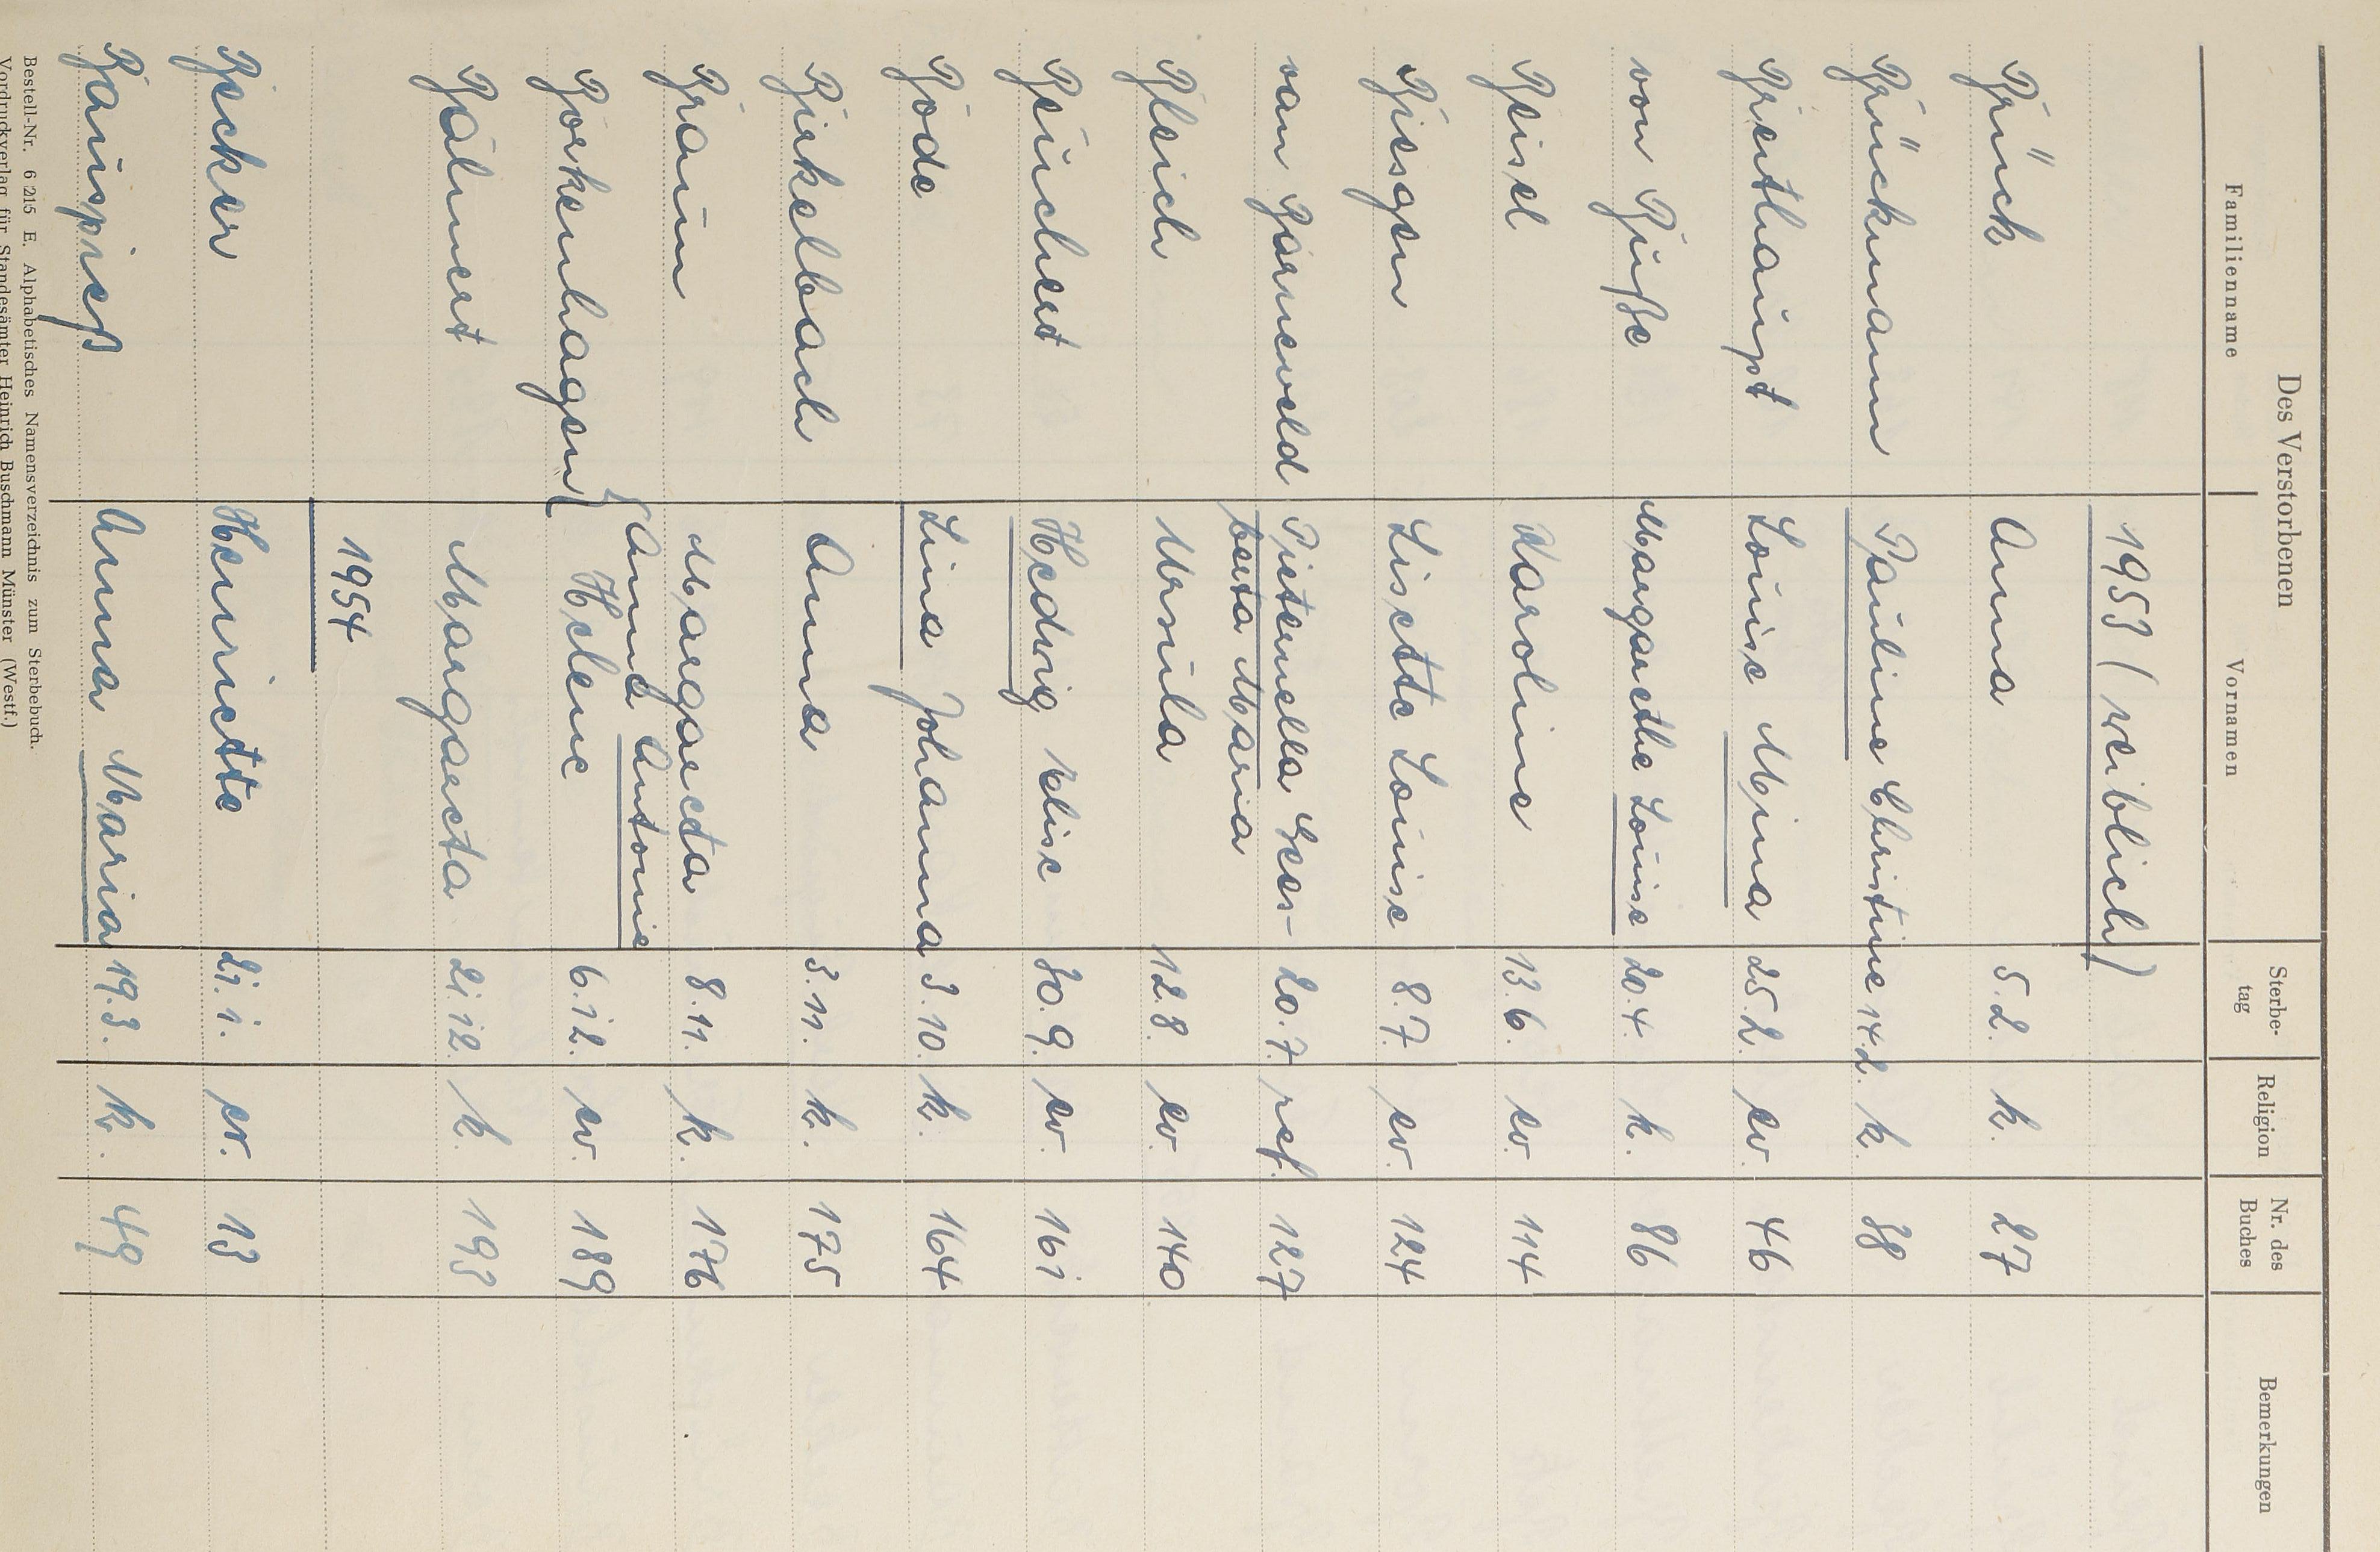 Des Verstorbenen
Familienname Vornamen Sterbe-tag Religion Nr. des Buches Bemerkungen
1953 (weiblich)
Grück Anna 5.2. k. 27
Grückmann Pauline Christine 14.2. k. 38
Greithaupt Louise Mina 25.2. ev. 46
von Gusse Margarethe Louise 20.4. k. 86
Geisel Karoline 13.6. ev. 114
Giesgen Lisette Louise 8.7. ev. 124
van Garneveld Pieternella Geer- 20.7. ref. 127
berta Maria
Gleich Ursula 12.8. ev. 140
Geuchert Hedwig Elise 30.9. ev. 161
Gode Lina Johanna 3.10. k. 164
Ginkelbach Anna 3.11. k. 175
Graun Margareta 8.11. k. 176
Anna Antonie
Gorkenhagen Helene 6.12. ev. 189
Galnert Margareta 21.12. k. 193
1954
Gecker Henriette 21.1. ev. 13
Gauspieß Anna Maria 19.3. k. 49
Bestell-Nr. 6 215 E. Alphabetisches Namensverzeichnis zum Sterbebuch.
Vordruckverlag für Standesämter Heinrich Buschmann Münster (Westf.)